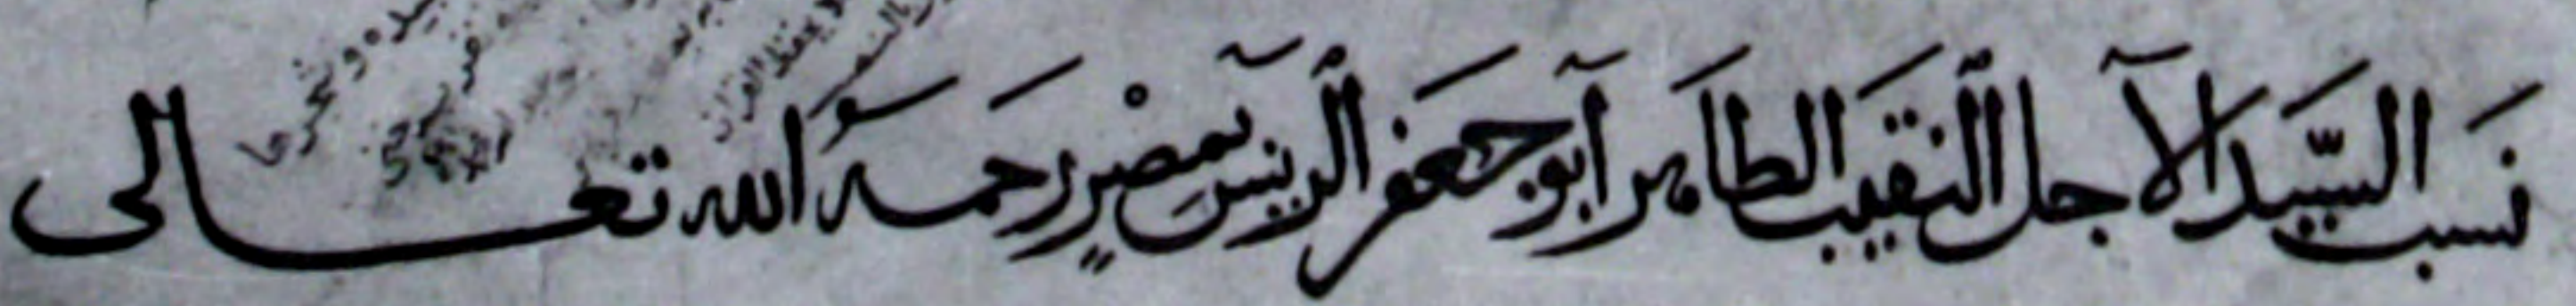 نسب السيد الآجل النقيب الطاهر آبو جعفر الريس بمصر رحمه الله تعالى